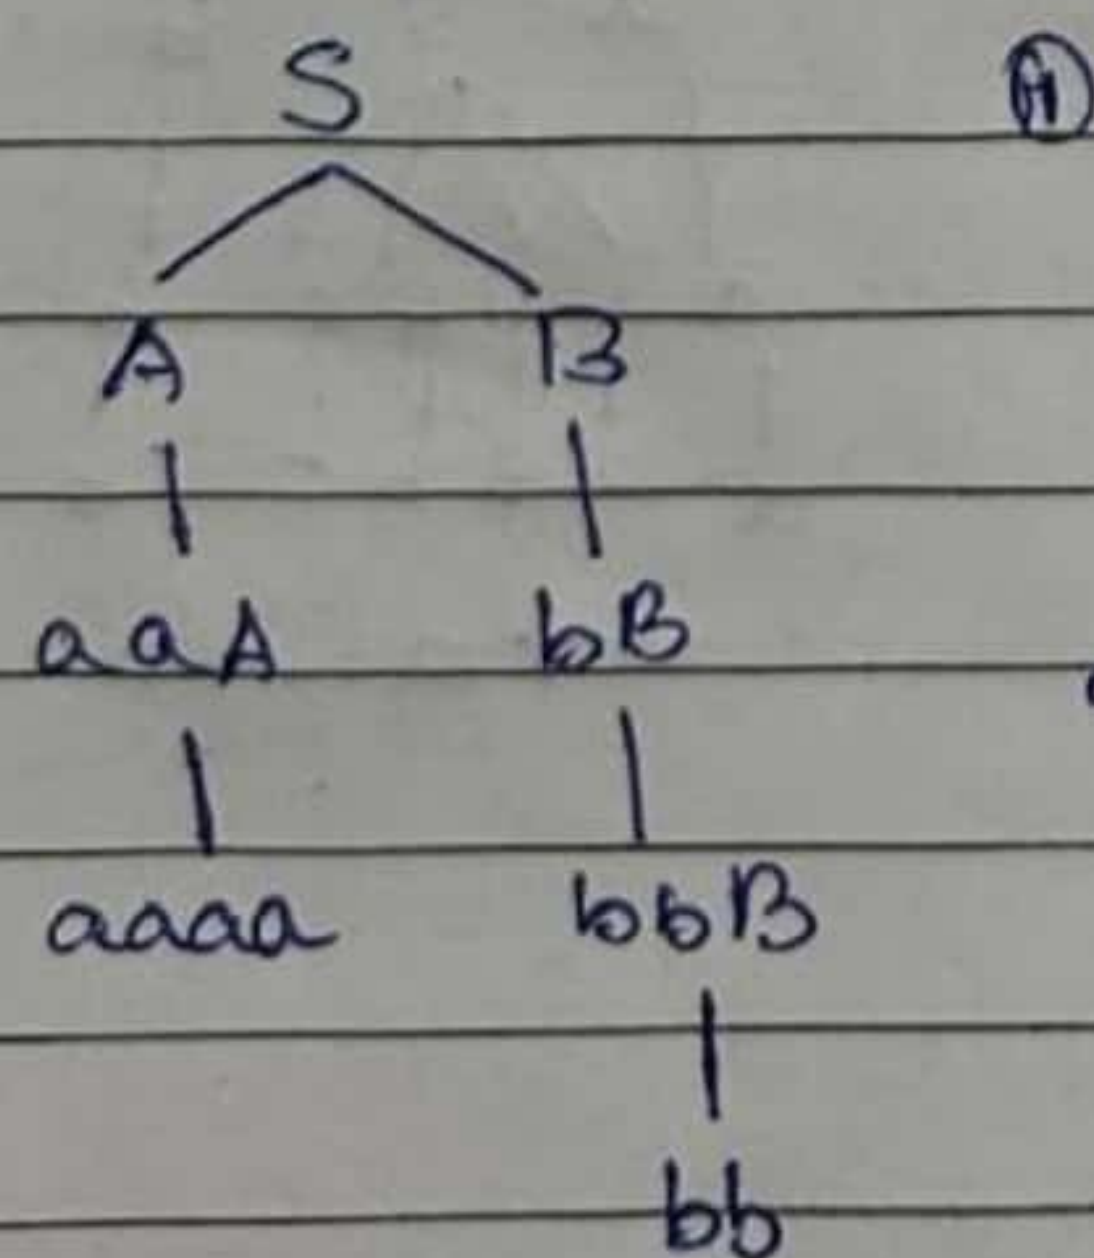 S
A B
aaA bB
aaaa bbB
bb